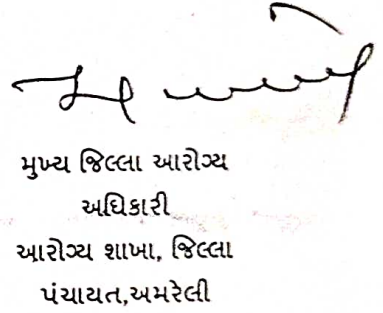 મુખ્ય જિલ્લા આરોગ્ય
અધિકારી
આરોગ્ય શાખા, જિલ્લા
પંચાયત,અમરેલી